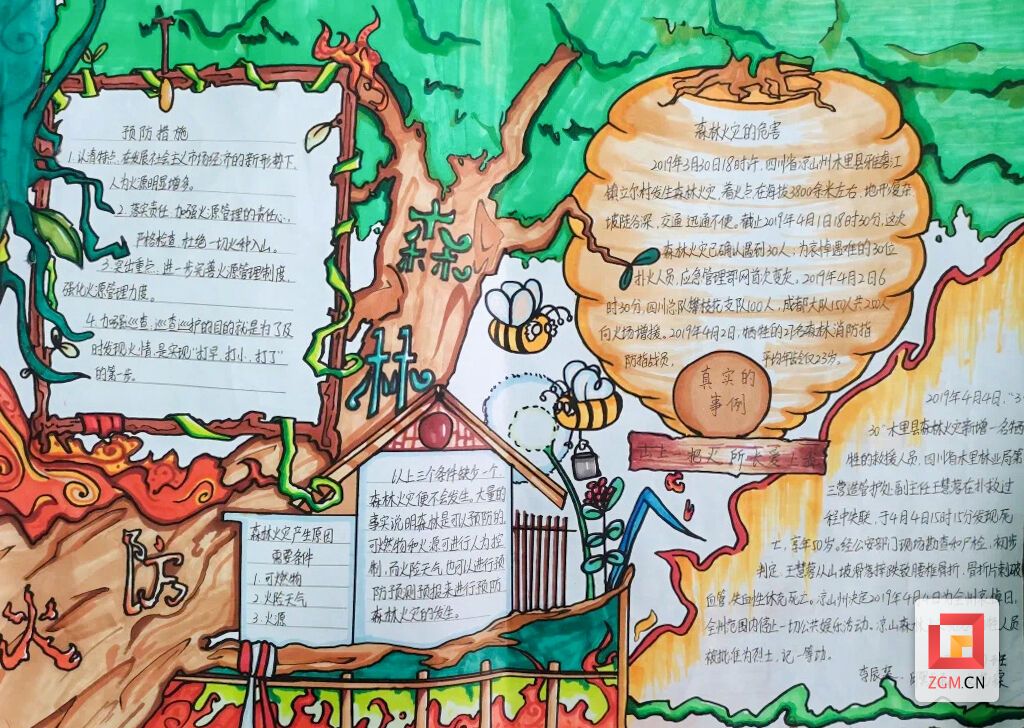 预防措施
1.认清特点,在发展社会主义市场经济的新形势下
人为火源明显增多。
2.落实责任,加强火源管理的责任心,
严格检查,杜绝一切火种入山。
3.突出重点,进一步完善火源管理制度,
强化火源管理力度。
4.加强巡查,巡查巡护的目的就是为了及
时发现火情,是实现“打早、打小、打了”
的第一步。
森
林
防
火
森林火灾产生原因
需要条件
1.可燃物
2.火险天气
3.火源
以上三个条件缺少一个,
森林火灾便不会发生,大量的
事实说明森林是可以预防的
可燃物和火源可进行人为控
制,而火险天气,也可以进行预
防预测预报来进行预防
森林火灾的发生。
森林火灾的危害
2019年3月30日18时许,四川省凉山州木里县雅砻江
镇立尔村发生森林火灾,着火点在海拔3800余米左右,地形复杂
坡陡谷深,交通通不便。截止2019年4月1日18时30分,这次
森林火灾已确认遇到30人,为哀悼遇难的30位
扑火人员,应急管理部网首次变灰,2019年4月2日6
时30分,四川总队攀枝花支队100人,成都大队150人共250人
向火场增援。2019年4月2日,牺牲的27名森林消防指
防指战员,平均年龄仅23岁。
真实的
事例
山上一把火,所长爱
2019年4月4日,“3
30”木里县森林火灾新增一名牺
牲的救援人员,四川省木里林业局第
三营造管护处副主任王慧蓉在扑救过
程中失联,于4月4日15时15分发现死
亡,享年50岁。经公安部门现场勘查和尸检,初步
判定,王慧蓉从山坡滑落摔跌致腰椎骨折,骨折片刺破
血管,失血性休克死亡。凉山州决定2019年4月4日为全州哀悼日,
全州范围内停止一切公共娱乐活动。凉山森林 人员
被批准为烈士,记一等功。
ZGM.CN